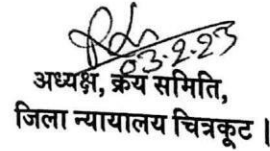 03-2-23
अध्यक्ष, क्रय समिति,
जिला न्यायालय चित्रकूट ।